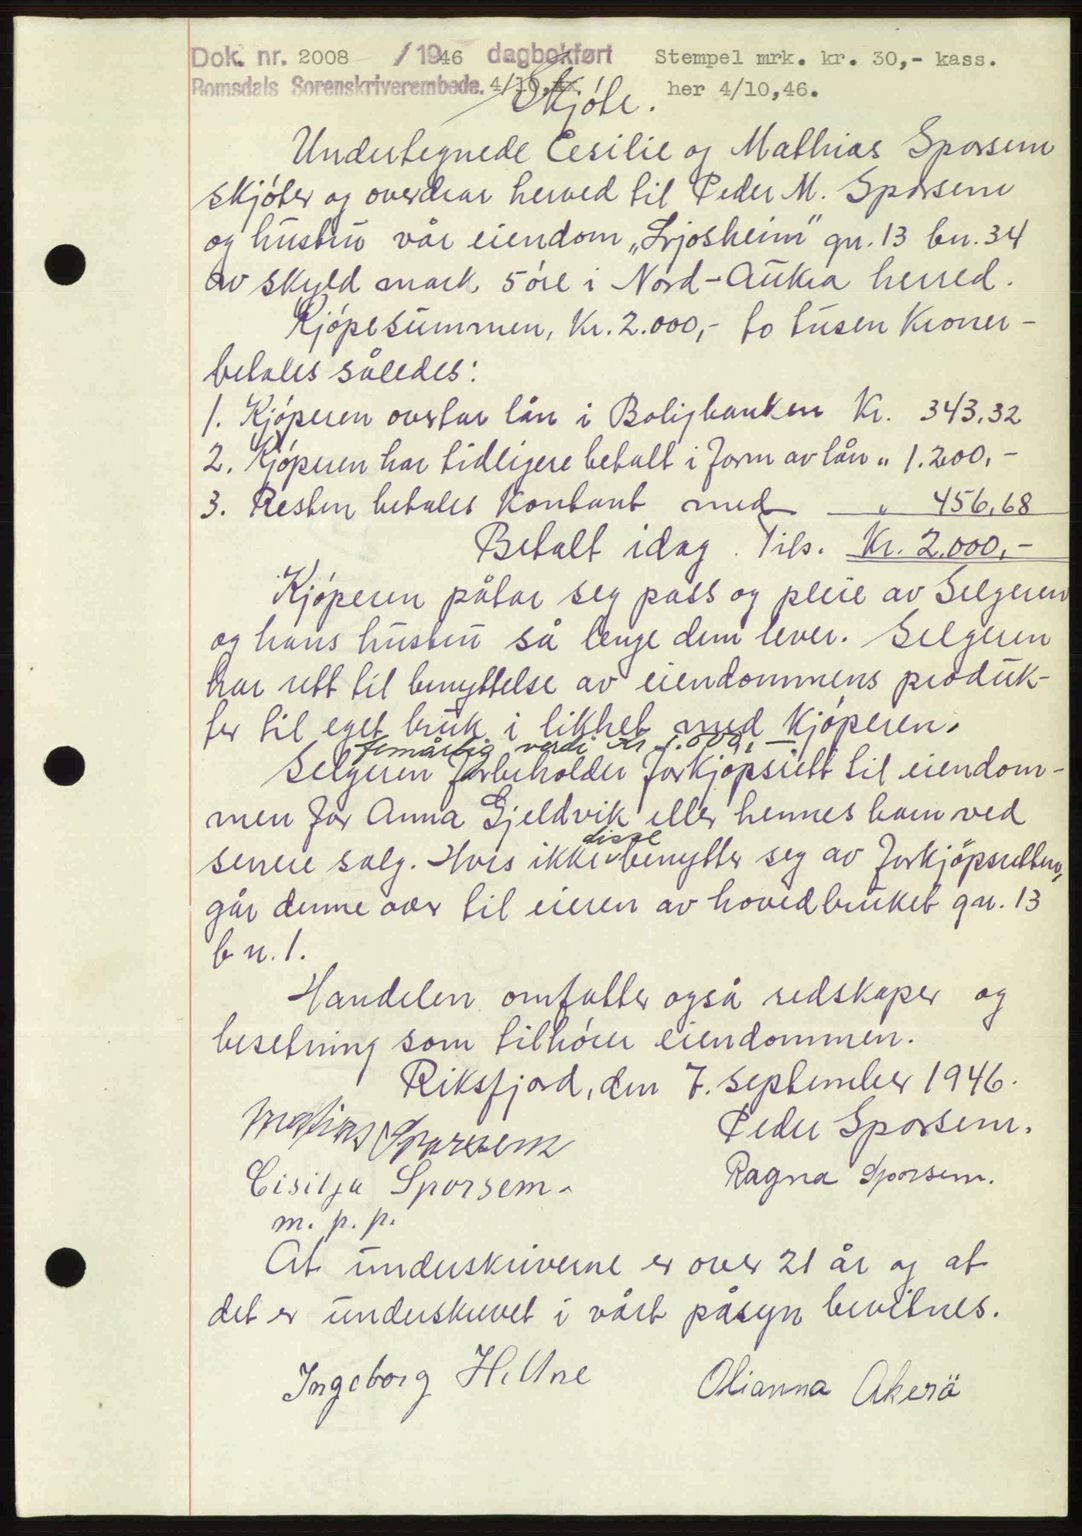 Dok. nr. 2008 / 1946 dagbokført Stempel mrk. kr. 30,- kass.
Romsdals Sorenskriverembede. 4/10, her 4/10,46.
Skjöte.
Undertegnede Cesilie og Mathias Sporsem
skjöter og overdrar herved til Peder M. Sporsem
og hustru vår eiendom „Ljosheim" gn. 13 bn. 34
av skyld mark 5 öre i Nord-Aukra herred.
Kjöpesummen, Kr. 2.000,- to tusen Kroner -
betales således:
1. Kjöperen overtar lån i Boligbanken Kr. 343,32
2. Kjöperen har tidligere betalt i form av lån „ 1.200,-
3. Resten betales Kontant med „ 456,68
Betalt idag. Tils. Kr. 2.000,-
Kjöperen påtar seg pass og pleie av Selgeren
og hans hustru så lenge dem lever. Selgeren
har rett til benyttelse av eiendommens produk-
ter til eget bruk i likhet med Kjöperen.
femårlig verdi kr 1.000,-
Selgeren forbeholder forkjöpsrett til eiendom-
men for Anna Gjeldvik eller hennes barn ved
senere salg. Hvis ikke disse benytter seg av forkjöpsretten,
går denne over til eieren av hovedbruket gn. 13
bn. 1.
Handelen omfatter også redskaper og
besetning som tilhörer eiendommen.
Riksfjord, den 7. september 1946.
Matias Sporsem Peder Sporsem.
Cisilja Sporsem. Ragna Sporsem.
m. p. p.
At underskriverne er over 21 år og at
det er underskrevet i vårt påsyn bevitnes.
Ingeborg H. Une Olianna Akerö